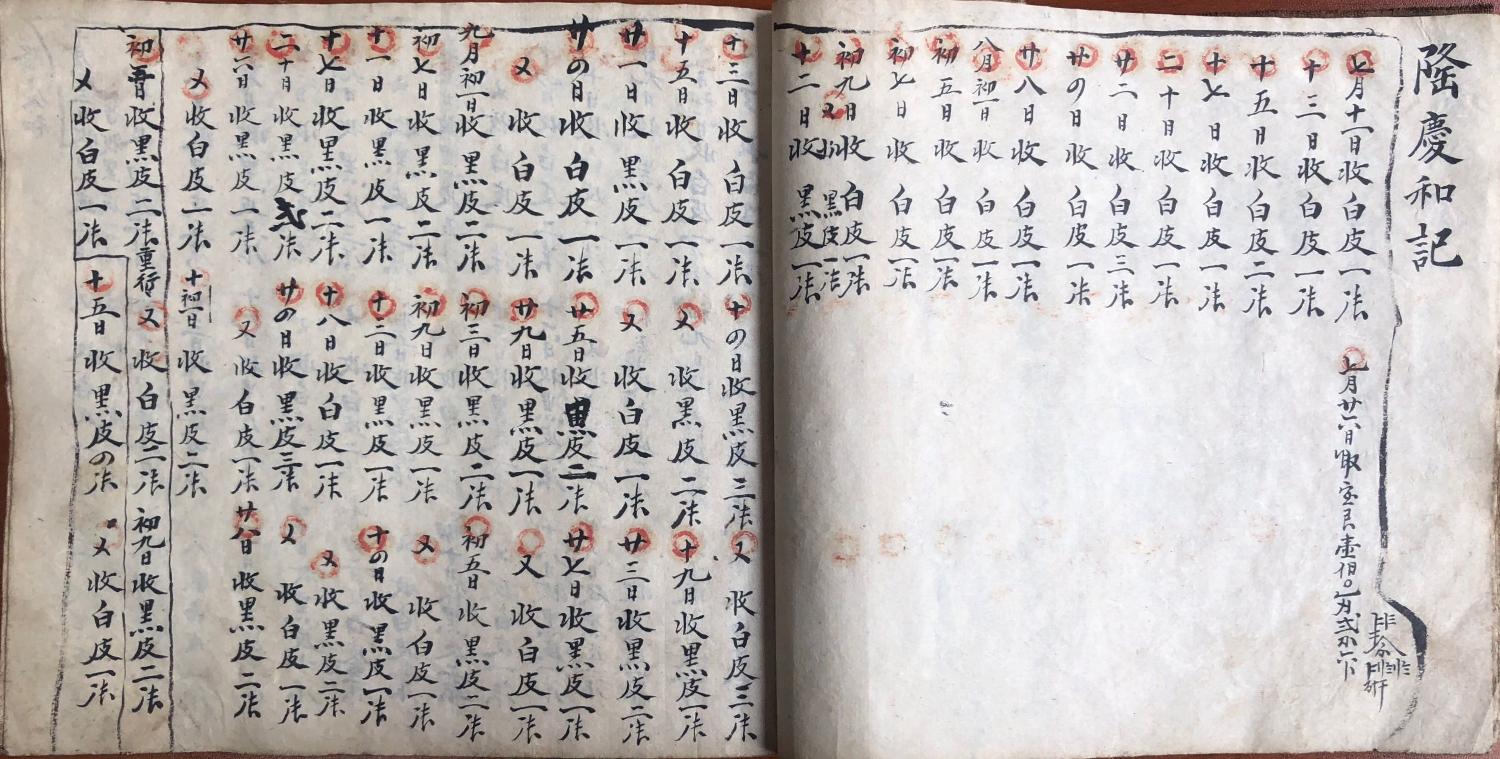 隆慶和記
七月十一日收白皮一法
七月廿六日收宝艮壹佰〇
十三日收白皮一法
十五日收白皮二法
十七日收白皮一法
二十日收白皮一法
廿二日收白皮三法
廿四日收白皮一法
廿八日收白皮一法
八月初一日收白皮一法
初五日收白皮一法
初七日收白皮一法
初九日收白皮一法
又收黑皮一法
十二日收黑皮一法
十三日收白皮一法 十四日收黑皮三法 又收白皮三法
十五日收白皮一法 又收黑皮二法 十九日收黑皮一法
廿一日收黑皮一法 又收白皮一法 廿三日收黑皮二法
廿四日收白皮一法 廿五日收黑皮二法 廿七日收黑皮一法
又收白皮一法 廿九日收黑皮一法 又收白皮一法
九月初一日收黑皮二法 初三日收黑皮二法 初五日收黑皮二法
初七日收黑皮二法 初九日收黑皮一法 又收白皮一法
十一日收黑皮一法 十二日收黑皮一法 十四日收黑皮一法
十七日收黑皮二法 十八日收白皮一法 又收黑皮二法
二十日收黑皮弍法 廿四日收黑皮三法 又收白皮一法
廿六日收黑皮一法 又收白皮一法 廿八日收黑皮二法
又收白皮一法 十初一日收黑皮二法
初五日收黑皮二法重行 又收白皮二法 初九日收黑皮二法
又收白皮一法 十五日收黑皮四法 又收白皮一法